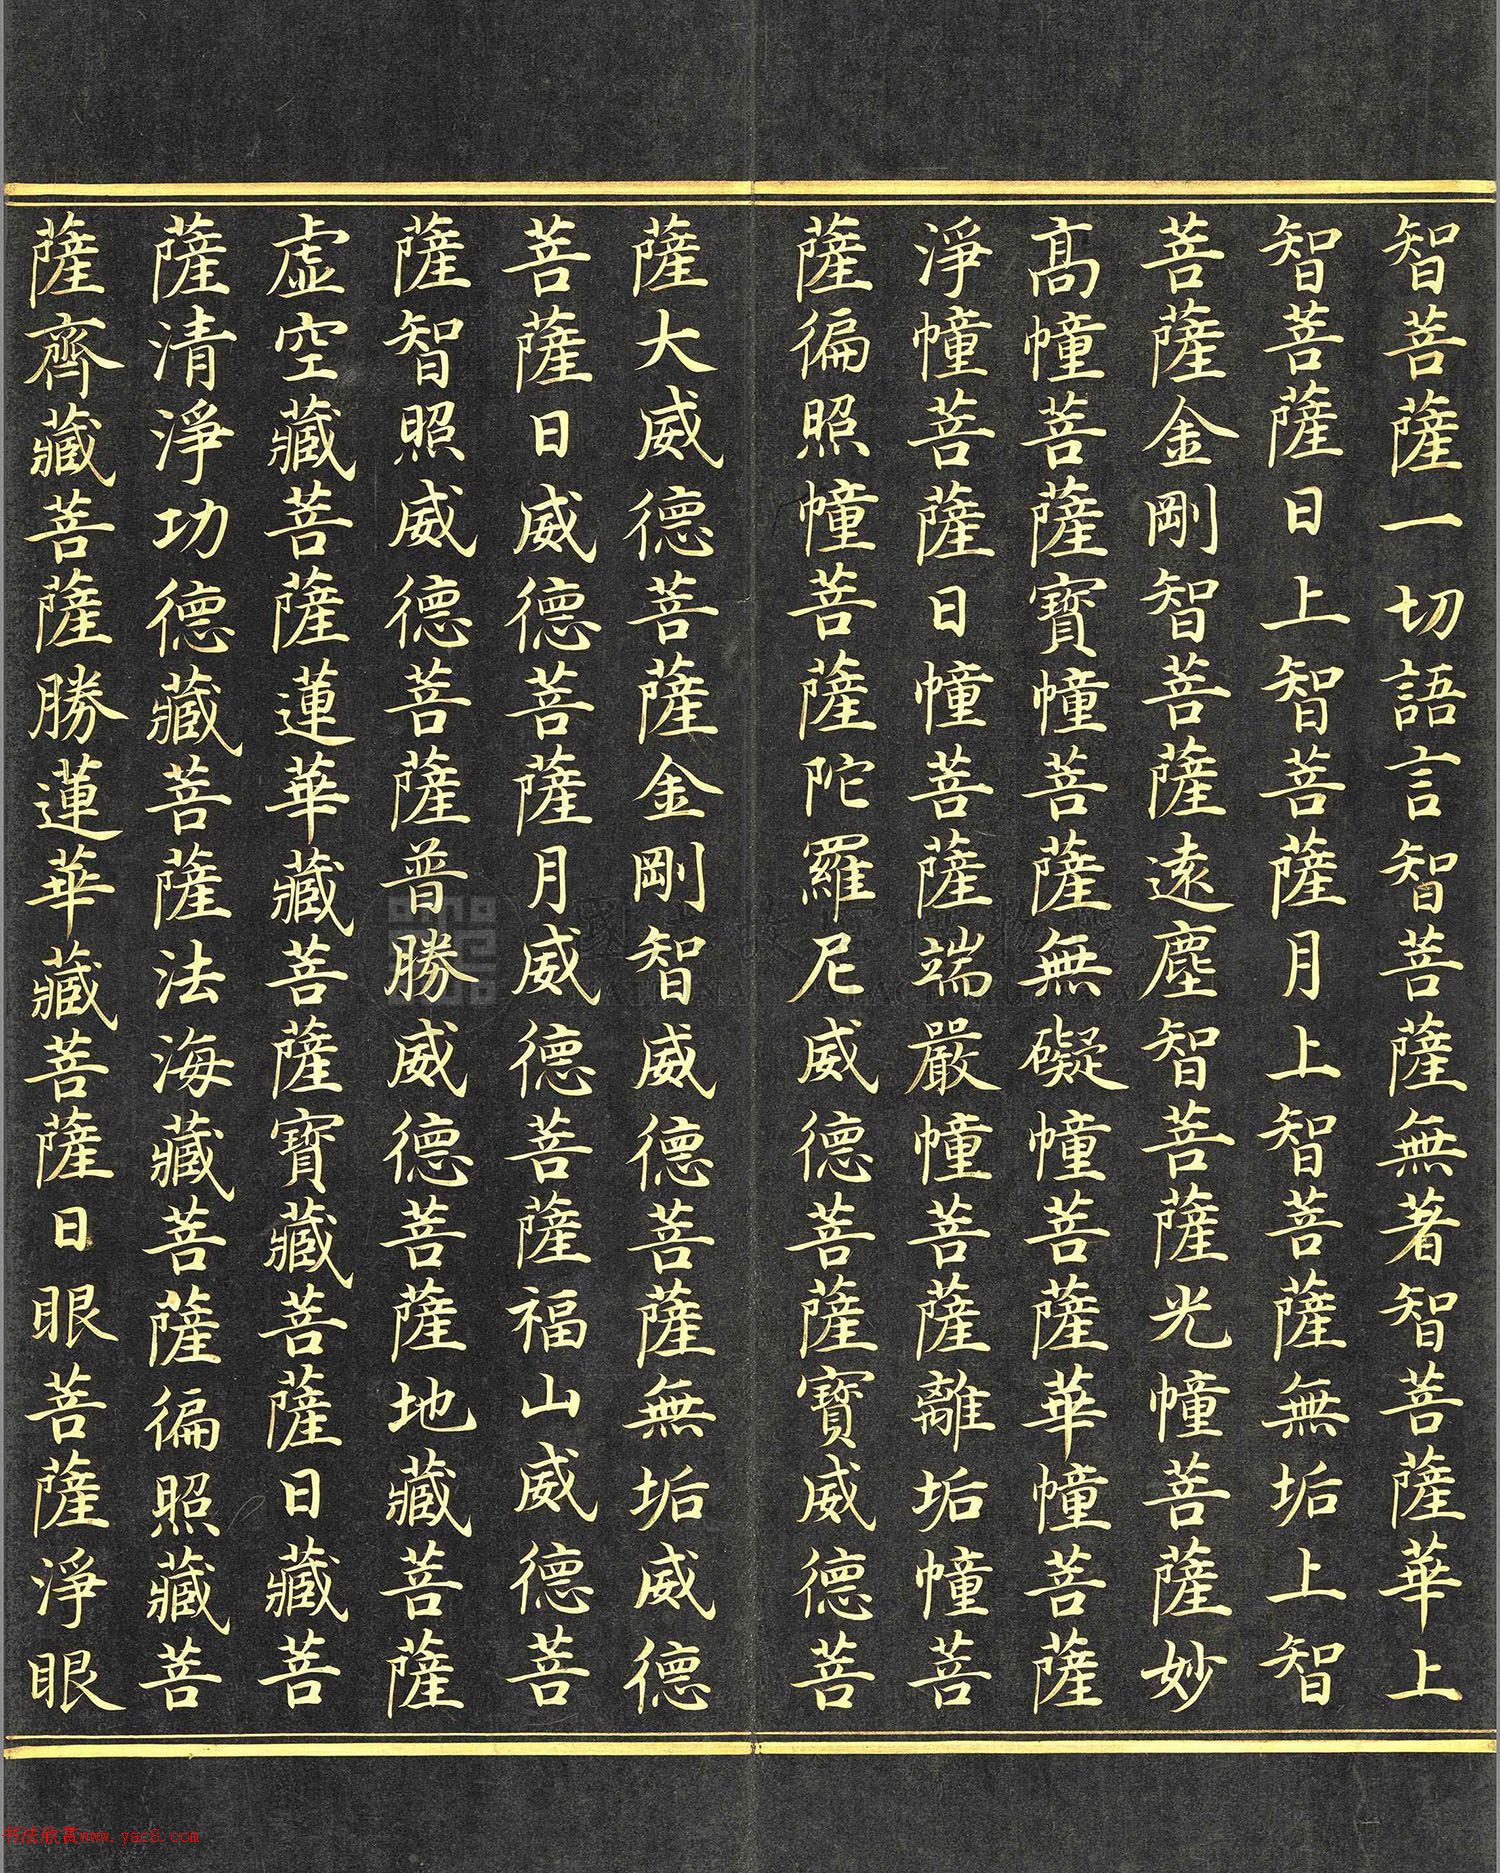 智菩薩一切語言智菩薩無著智菩薩華上
智菩薩日上智菩薩月上智菩薩無垢上智
菩薩金剛智菩薩遠塵智菩薩光幢菩薩妙
高幢菩薩寶幢菩薩無礙幢菩薩華幢菩薩
淨幢菩薩日幢菩薩端嚴幢菩薩離垢幢菩
薩徧照幢菩薩陀羅尼威德菩薩寶威德菩
薩大威德菩薩金剛智威德菩薩無垢威德
菩薩日威德菩薩月威德菩薩福山威德菩
薩智照威德菩薩普勝威德菩薩地藏菩薩
虛空藏菩薩蓮華藏菩薩寶藏菩薩日藏菩
薩清淨功德藏菩薩法海藏菩薩徧照藏菩
薩齊藏菩薩勝蓮華藏菩薩日眼菩薩淨眼
书法欣赏www.yac8.com